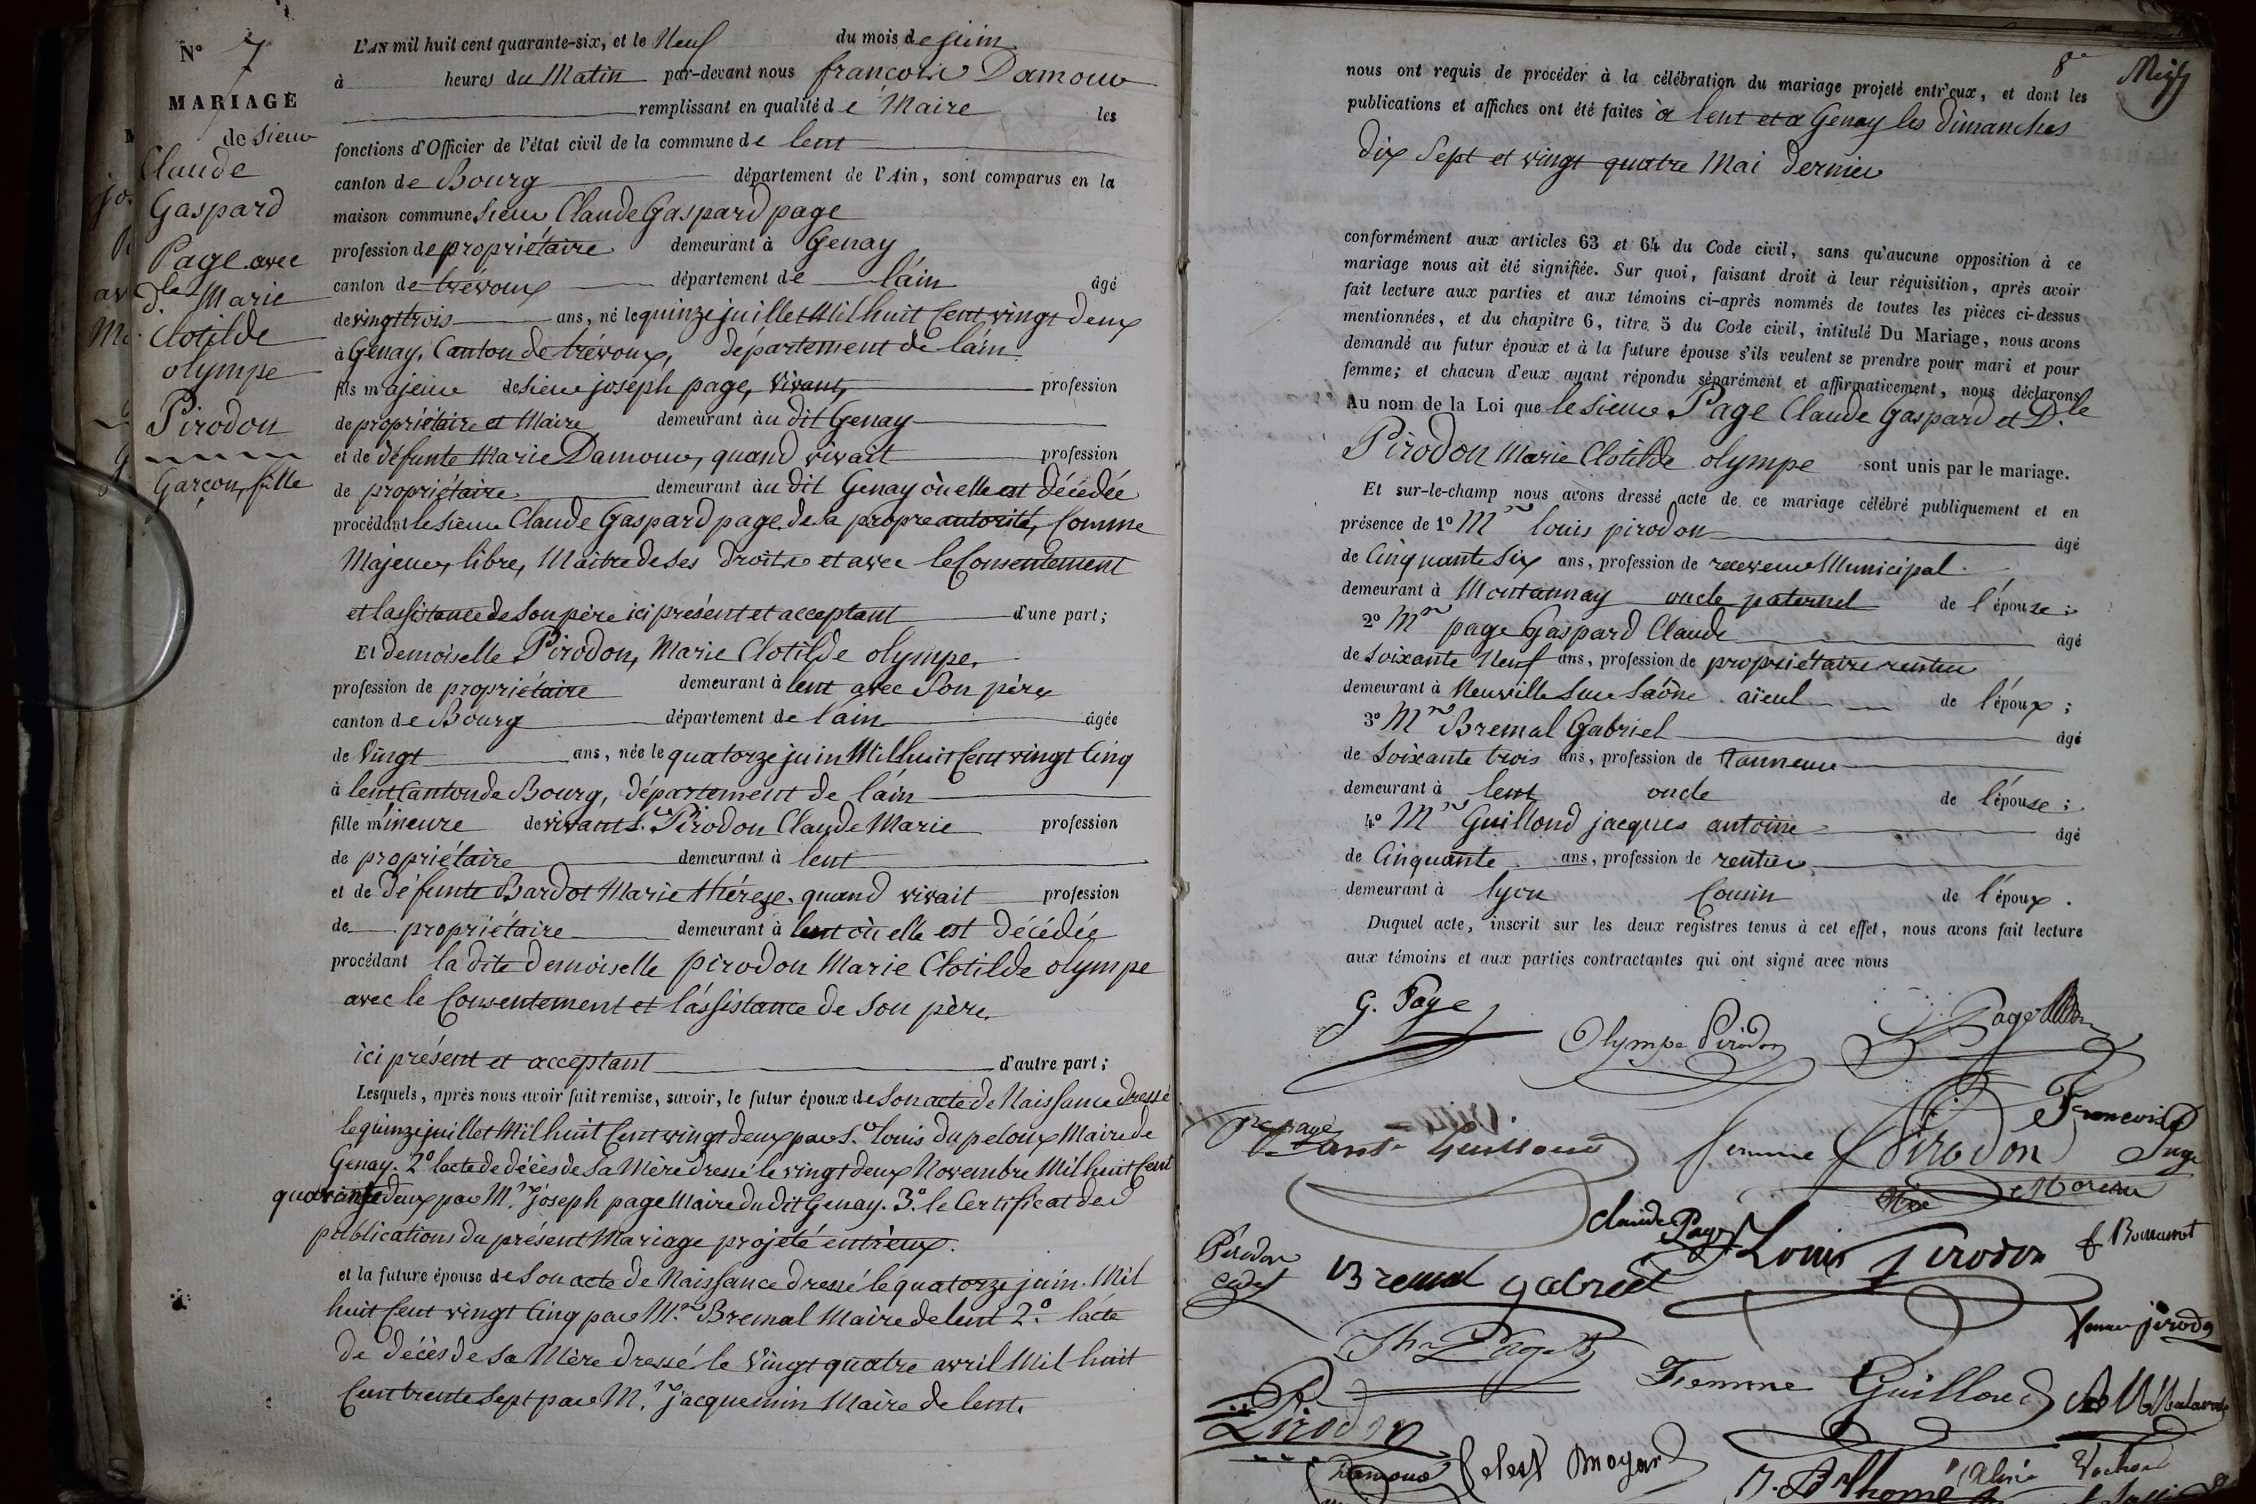 N° 7
MARIAGE
de Sieur
Claude
Gaspard
Page avec
dlle Marie
Clotilde
olympe
Pirodon
Garçon, fille
L'AN mil huit cent quarante-six, et le Neuf du mois de juin
à heures du Matin par-devant nous francois Damour
remplissant en qualité de Maire les
fonctions d'Officier de l'état civil de la commune de lent
canton de Bourg département de l'Ain, sont comparus en la
maison commune Sieur Claude Gaspard page
profession de propriétaire demeurant à Genay
canton de trévoux département de l'ain âgé
de vingt trois ans, né le quinze juillet Mil huit Cent vingt deux
à Genay, Canton de trévoux, département de l'ain
fils majeur de Sieur joséph page, vivant, profession
de propriétaire et Maire demeurant au dit Genay
et de défunte Marie Damour, quand vivait profession
de propriétaire demeurant au dit Genay où elle est décédée
procédant le Sieur Claude Gaspard page de sa propre autorité, Comme
Majeur, libre, Maitre de Ses droits et avec le Consentement
et l'assistance de Son père ici présent et acceptant d'une part ;
Et demoiselle Pirodon, Marie Clotilde olympe,
profession de propriétaire demeurant à lent avec Son père
canton de Bourg département de l'ain âgée
de Vingt ans, née le quatorze juin Mil huit Cent vingt Cinq
à lent Canton de Bourg, département de l'ain
fille mineure de vivant S. Pirodon Claude Marie profession
de propriétaire demeurant à lent
et de défunte Bardot Marie thérèse, quand vivait profession
de propriétaire demeurant à lent où elle est décédée
procédant la dite demoiselle pirodon Marie Clotilde olympe
avec le Consentement et l'assistance de Son père
ici présent et acceptant d'autre part ;
Lesquels, après nous avoir fait remise, savoir, le futur époux de Son acte de Naissance dressé
le quinze juillet Mil huit Cent vingt deux par S. louis dupeloux Maire de
Genay. 2° l'acte de décès de Sa Mère dressé le vingt deux Novembre Mil huit Cent
quarante deux par Mr. joseph page Maire du dit Genay. 3° le Certificat de
publications du présent Mariage projeté entr'eux.
et la future épouse de Son acte de Naissance dressé le quatorze juin Mil
huit Cent vingt Cinq par Mr. Bremal Maire de lent 2° l'acte
de décès de Sa Mère dressé le vingt quatre avril Mil huit
Cent trente Sept par Mr. jacquemin Maire de lent.
8e
nous ont requis de procéder à la célébration du mariage projeté entr'eux, et dont les
publications et affiches ont été faites à lent et à Genay les dimanches
dix Sept et vingt quatre Mai dernier
conformément aux articles 63 et 64 du Code civil, sans qu'aucune opposition à ce
mariage nous ait été signifiée. Sur quoi, faisant droit à leur réquisition, après avoir
fait lecture aux parties et aux témoins ci-après nommés de toutes les pièces ci-dessus
mentionnées, et du chapitre 6, titre 5 du Code civil, intitulé Du Mariage, nous avons
demandé au futur époux et à la future épouse s'ils veulent se prendre pour mari et pour
femme ; et chacun d'eux ayant répondu séparément et affirmativement, nous déclarons
Au nom de la Loi que le Sieur Page Claude Gaspard et Dlle
Pirodon Marie Clotilde olympe sont unis par le mariage.
Et sur-le-champ nous avons dressé acte de ce mariage célébré publiquement et en
présence de 1° Mr louis pirodon âgé
de Cinquante Six ans, profession de receveur Municipal
demeurant à Montannay oncle paternel de l'épouse ;
2° Mr page Gaspard Claude âgé
de Soixante Neuf ans, profession de propriétaire rentier
demeurant à Neuville Sur Saône aïeul de l'époux ;
3° Mr Bremal Gabriel âgé
de Soixante trois ans, profession de tanneur
demeurant à lent oncle de l'épouse ;
4° Mr Guillond jacques antoine âgé
de Cinquante ans, profession de rentier
demeurant à lyon Cousin de l'époux.
Duquel acte, inscrit sur les deux registres tenus à cet effet, nous avons fait lecture
aux témoins et aux parties contractantes qui ont signé avec nous
G. Page
Olympe Pirodon
Page
femme Pirodon
née Moreau
Claude Page
Louis Pirodon
Pirodon
cadet
Bremal gabriel
Femme Guilloud
Pirodon
Damour